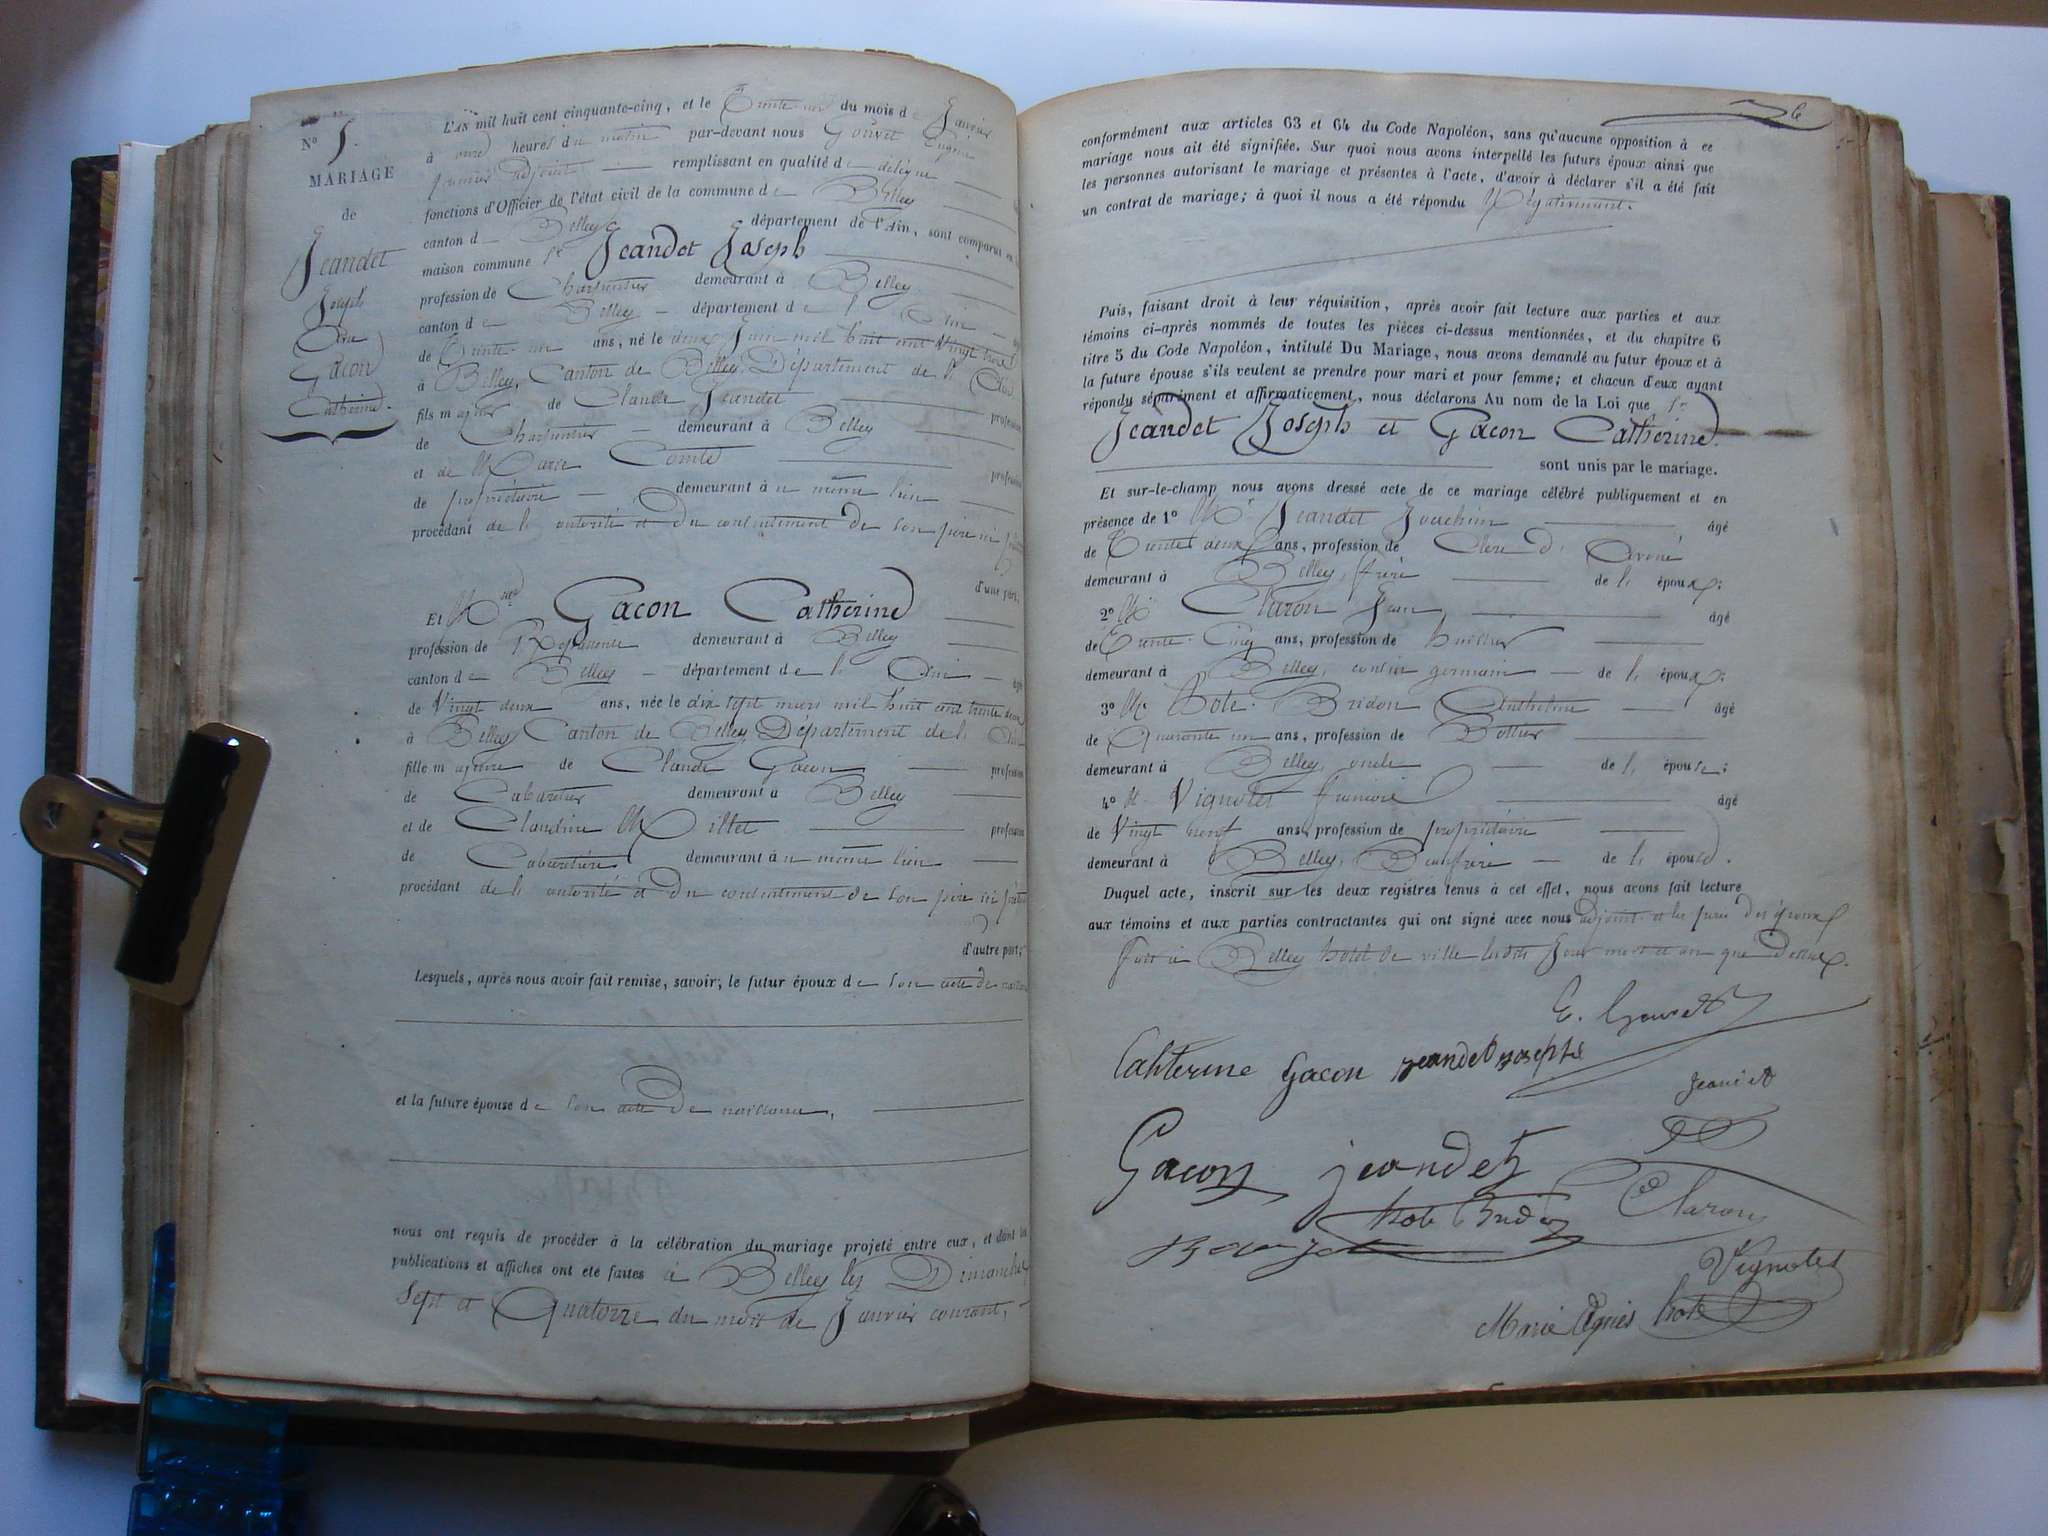 N° 5.
MARIAGE
de
Jeandet
Joseph
Avec
Gacon
Catherine.
L'AN mil huit cent cinquante-cinq, et le Trente un du mois de Janvier
à onze heures du matin par-devant nous Gouvet Eugène
premier adjoint remplissant en qualité de délégué
fonctions d'Officier de l'état civil de la commune de Belley
canton de Belley département de l'Ain, sont comparus en
maison commune Sr Jeandet Joseph
profession de Charpentier demeurant à Belley
canton de Belley département de l'Ain
de Trente-un ans, né le deux Juin mil huit cent vingt trois
à Belley, Canton de Belley, Département de l'Ain
fils majeur de Claude Jeandet profession
de Charpentier demeurant à Belley
et de Marie Comte profession
de propriétaire demeurant au même lieu
procédant de l'autorité et du consentement de son père ici présent
d'une part,
Et Mlle Gacon Catherine
profession de Repasseuse demeurant à Belley
canton de Belley département de l'Ain âgé
de Vingt deux ans, née le dix sept mars mil huit cent trente deux
à Belley Canton de Belley, Département de l'Ain
fille majeure de Claude Gacon profession
de Cabaretier demeurant à Belley
et de Claudine Millet profession
de Cabaretière demeurant au même lieu
procédant de l'autorité et du consentement de son père ici présent
d'autre part;
Lesquels, après nous avoir fait remise, savoir; le futur époux de son acte de naissance
et la future épouse de son acte de naissance,
nous ont requis de procéder à la célébration du mariage projeté entre eux, et dont les
publications et affiches ont été faites à Belley les Dimanches
Sept et Quatorze du mois de Janvier courant,
6
conformément aux articles 63 et 64 du Code Napoléon, sans qu'aucune opposition à ce
mariage nous ait été signifiée. Sur quoi nous avons interpellé les futurs époux ainsi que
les personnes autorisant le mariage et présentes à l'acte, d'avoir à déclarer s'il a été fait
un contrat de mariage; à quoi il nous a été répondu Négativement.
Puis, faisant droit à leur réquisition, après avoir fait lecture aux parties et aux
témoins ci-après nommés de toutes les pièces ci-dessus mentionnées, et du chapitre 6
titre 5 du Code Napoléon, intitulé Du Mariage, nous avons demandé au futur époux et à
la future épouse s'ils veulent se prendre pour mari et pour femme; et chacun d'eux ayant
répondu séparément et affirmativement, nous déclarons Au nom de la Loi que Sr
Jeandet Joseph et Gacon Catherine
sont unis par le mariage.
Et sur-le-champ nous avons dressé acte de ce mariage célébré publiquement et en
présence de 1° Mr Jeandet Joachim âgé
de Trente deux ans, profession de Clerc d'Avoué
demeurant à Belley, frère de l'époux;
2° M Claron Jean âgé
de Trente-Cinq ans, profession de huissier
demeurant à Belley, cousin germain de l'époux;
3° M. Hote-Bridon Anthelme âgé
de Quarante un ans, profession de Bottier
demeurant à Belley, oncle de l'épouse;
4° M. Vignolet âgé
de Vingt neuf ans, profession de propriétaire
demeurant à Belley, Beaufrère de l'épouse.
Duquel acte, inscrit sur les deux registres tenus à cet effet, nous avons fait lecture
aux témoins et aux parties contractantes qui ont signé avec nous adjoint et les pères des époux
Fait à Belley hôtel de ville lesdits Jour mois et an que dessus.
E. Gouvet
Cahterine Gacon jeandet joseph
Jeandet
Gacon jeandet
Claron
hote Bridon
Vignolet
Marie Agnès hote